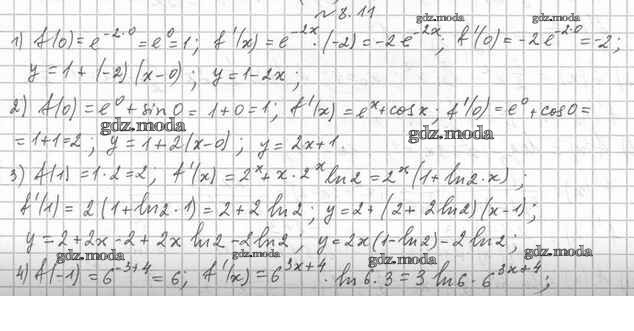 № 8.11 gdz.moda
1) f(0) = e^{-2·0} = e^0 = 1; f'(x) = e^{-2x}·(-2) = -2e^{-2x}; f'(0) = -2e^{-2·0} = -2;
y = 1 + (-2)(x-0); y = 1-2x;
gdz.moda
2) f(0) = e^0 + sin 0 = 1+0 = 1; f'(x) = e^x + cos x; f'(0) = e^0 + cos 0 =
gdz.moda gdz.moda
= 1+1 = 2; y = 1+2(x-0); y = 2x+1.
3) f(1) = 1·2 = 2; f'(x) = 2^x + x·2^x ln 2 = 2^x (1+ln 2·x);
f'(1) = 2(1+ln 2·1) = 2+2 ln 2; y = 2+(2+2 ln 2)(x-1);
y = 2+2x-2+2x ln 2-2 ln 2; y = 2x(1-ln 2)-2 ln 2;
gdz.moda gdz.moda gdz.moda gdz.moda
4) f(-1) = 6^{-3+4} = 6; f'(x) = 6^{3x+4}·ln 6·3 = 3 ln 6·6^{3x+4};